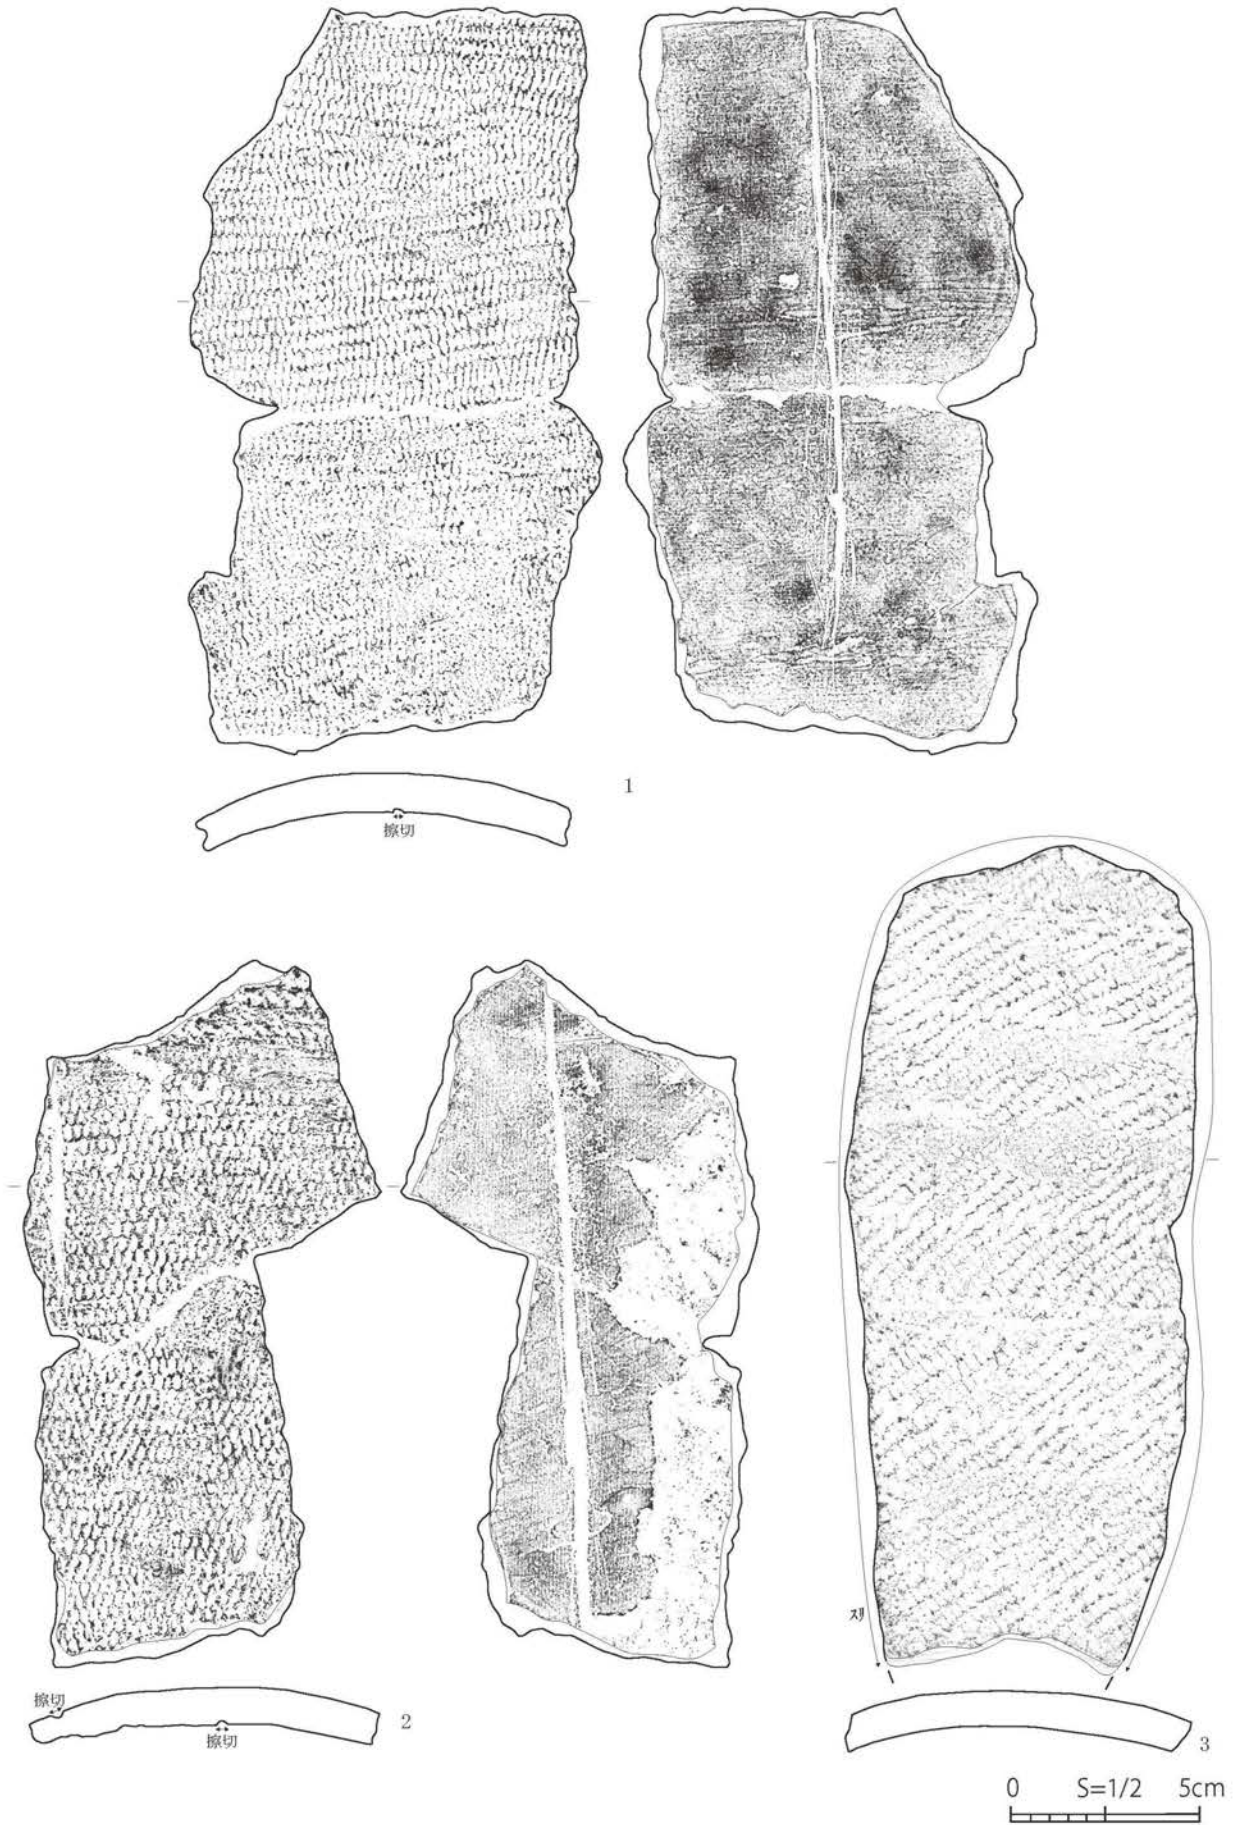 1
擦切
スリ
擦切
2
擦切
3
0 S=1/2 5cm